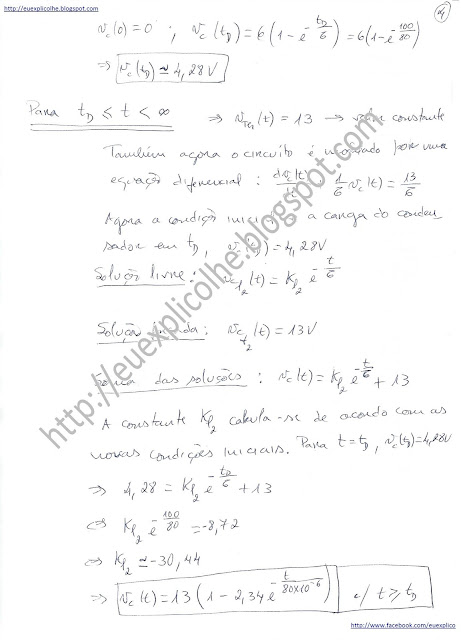 http://euexplicolhe.blogspot.com
4
v_c(0) = 0 ; v_c(t_D) = 6(1 - e^{-t_D/6}) = 6(1 - e^{-100/80})
⇒ v_c(t_D) ≃ 4,28V
Para t_D ≤ t < ∞ ⇒ v_{TH}(t) = 13 → valor constante
Também agora o circuito é modelado por uma
equação diferencial : dv_c(t)/dt + 1/6 v_c(t) = 13/6
Agora a condição inicial é a carga do conden
sador em t_D, v_c(t_D) = 4,28V
Solução livre: v_{cℓ_2}(t) = K_{ℓ_2} e^{-t/6}
Solução forçada: v_{cf_2}(t) = 13V
Soma das soluções : v_c(t) = K_{ℓ_2} e^{-t/6} + 13
A constante K_{ℓ_2} calcula-se de acordo com as
novas condições iniciais. Para t = t_D, v_c(t_D) = 4,28V
⇒ 4,28 = K_{ℓ_2} e^{-t_D/6} + 13
⇔ K_{ℓ_2} e^{-100/80} = -8,72
⇔ K_{ℓ_2} ≃ -30,44
⇒ v_c(t) = 13(1 - 2,34 e^{-t/(80×10^{-6})}) c/ t ≥ t_D
http://euexplicolhe.blogspot.com
http://www.facebook.com/euexplico